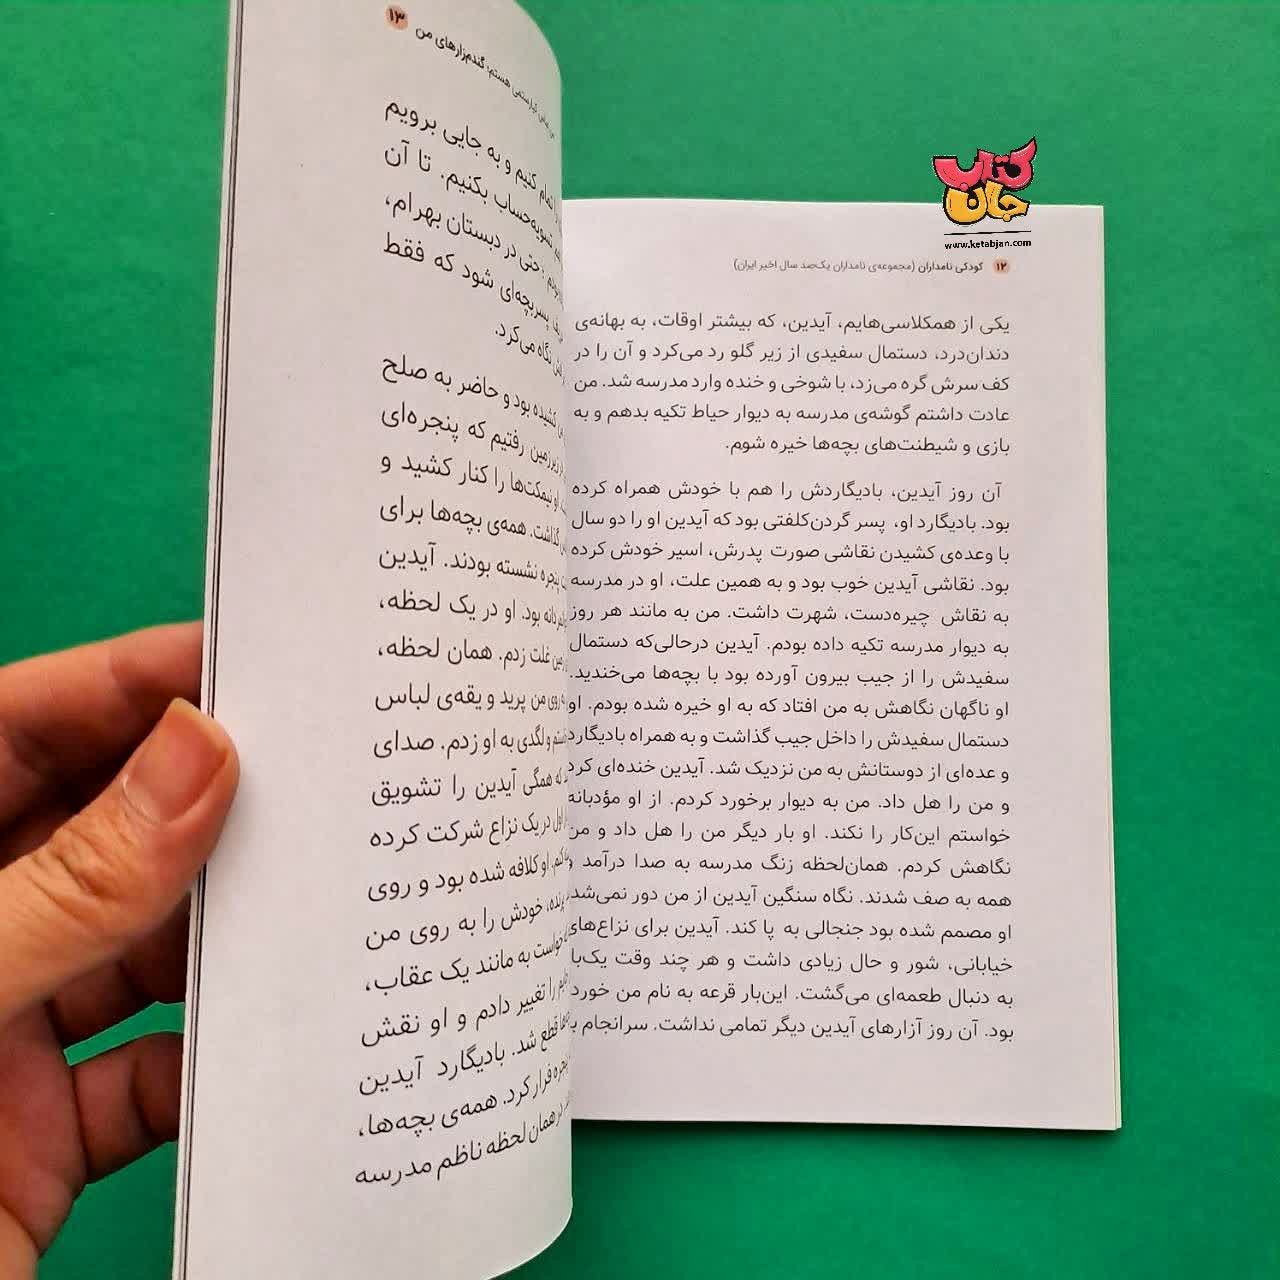 کتاب
جان
www.ketabjan.com
۱۲ کودکی نامداران (مجموعه‌ی نامداران یک‌صد سال اخیر ایران)
یکی از همکلاسی‌هایم، آیدین، که بیشتر اوقات، به بهانه‌ی
دندان‌درد، دستمال سفیدی از زیر گلو رد می‌کرد و آن را در
کف سرش گره می‌زد، با شوخی و خنده وارد مدرسه شد. من
عادت داشتم گوشه‌ی مدرسه به دیوار حیاط تکیه بدهم و به
بازی و شیطنت‌های بچه‌ها خیره شوم.
آن روز آیدین، بادیگاردش را هم با خودش همراه کرده
بود. بادیگارد او، پسر گردن‌کلفتی بود که آیدین او را دو سال
با وعده‌ی کشیدن نقاشی صورت پدرش، اسیر خودش کرده
بود. نقاشی آیدین خوب بود و به همین علت، او در مدرسه
به نقاش چیره‌دست، شهرت داشت. من به مانند هر روز
به دیوار مدرسه تکیه داده بودم. آیدین درحالی‌که دستمال
سفیدش را از جیب بیرون آورده بود با بچه‌ها می‌خندید.
او ناگهان نگاهش به من افتاد که به او خیره شده بودم. او
دستمال سفیدش را داخل جیب گذاشت و به همراه بادیگارد
و عده‌ای از دوستانش به من نزدیک شد. آیدین خنده‌ای کرد
و من را هل داد. من به دیوار برخورد کردم. از او مؤدبانه
خواستم این‌کار را نکند. او بار دیگر من را هل داد و من
نگاهش کردم. همان‌لحظه زنگ مدرسه به صدا درآمد و
همه به صف شدند. نگاه سنگین آیدین از من دور نمی‌شد.
او مصمم شده بود جنجالی به پا کند. آیدین برای نزاع‌های
خیابانی، شور و حال زیادی داشت و هر چند وقت یک‌با
به دنبال طعمه‌ای می‌گشت. این‌بار قرعه به نام من خورد
بود. آن روز آزارهای آیدین دیگر تمامی نداشت. سرانجام
هستم: گندم‌زارهای من ۱۳
تمام کنیم و به جایی برویم
تسویه‌حساب بکنیم. تا آن
حتی در دبستان بهرام،
پسربچه‌ای شود که فقط
نگاه می‌کرد.
کشیده بود و حاضر به صلح
زیرزمین رفتیم که پنجره‌ای
او نیمکت‌ها را کنار کشید و
گذاشت. همه‌ی بچه‌ها برای
پنجره نشسته بودند. آیدین
بود. او در یک لحظه،
غلت زدم. همان لحظه،
روی من پرید و یقه‌ی لباس
و لگدی به او زدم. صدای
که همگی آیدین را تشویق
اول در یک نزاع شرکت کرده
او کلافه شده بود و روی
خودش را به روی من
خواست به مانند یک عقاب،
را تغییر دادم و او نقش
قطع شد. بادیگارد آیدین
فرار کرد. همه‌ی بچه‌ها،
در همان لحظه ناظم مدرسه